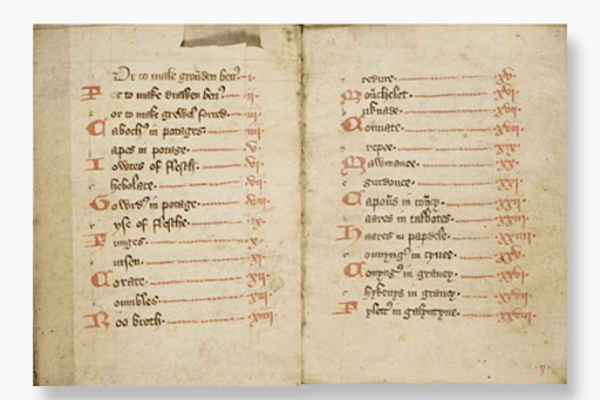 Or to make grounden ben · i ·
For to make drawen ben · ii ·
or to make grewel forced · iii ·
Caboch in potage · iiii ·
apes in potage · v ·
Iowtes of flessh · vi ·
hebolace · vii ·
Gowrd in potage · viii ·
yse of flesshe · ix ·
Funges · x ·
ursen · xi ·
Corate · xii ·
oumbles · xiii ·
Roo broth · xiiii ·
redure · xv ·
Mounchelet · xvi ·
uknade · xvii ·
Connate · xviii ·
repee · xix ·
Mawmenee · xx ·
gurdouce · xxi ·
Capons in concy · xxii ·
aares in talbotes · xxiii ·
Haares in papdele · xxiiii ·
onnyng in cyuee · xxv ·
Conyng in grauey · xxvi ·
hykenys in grauey · xxvii ·
Fylett in galyntyne · xxviii ·